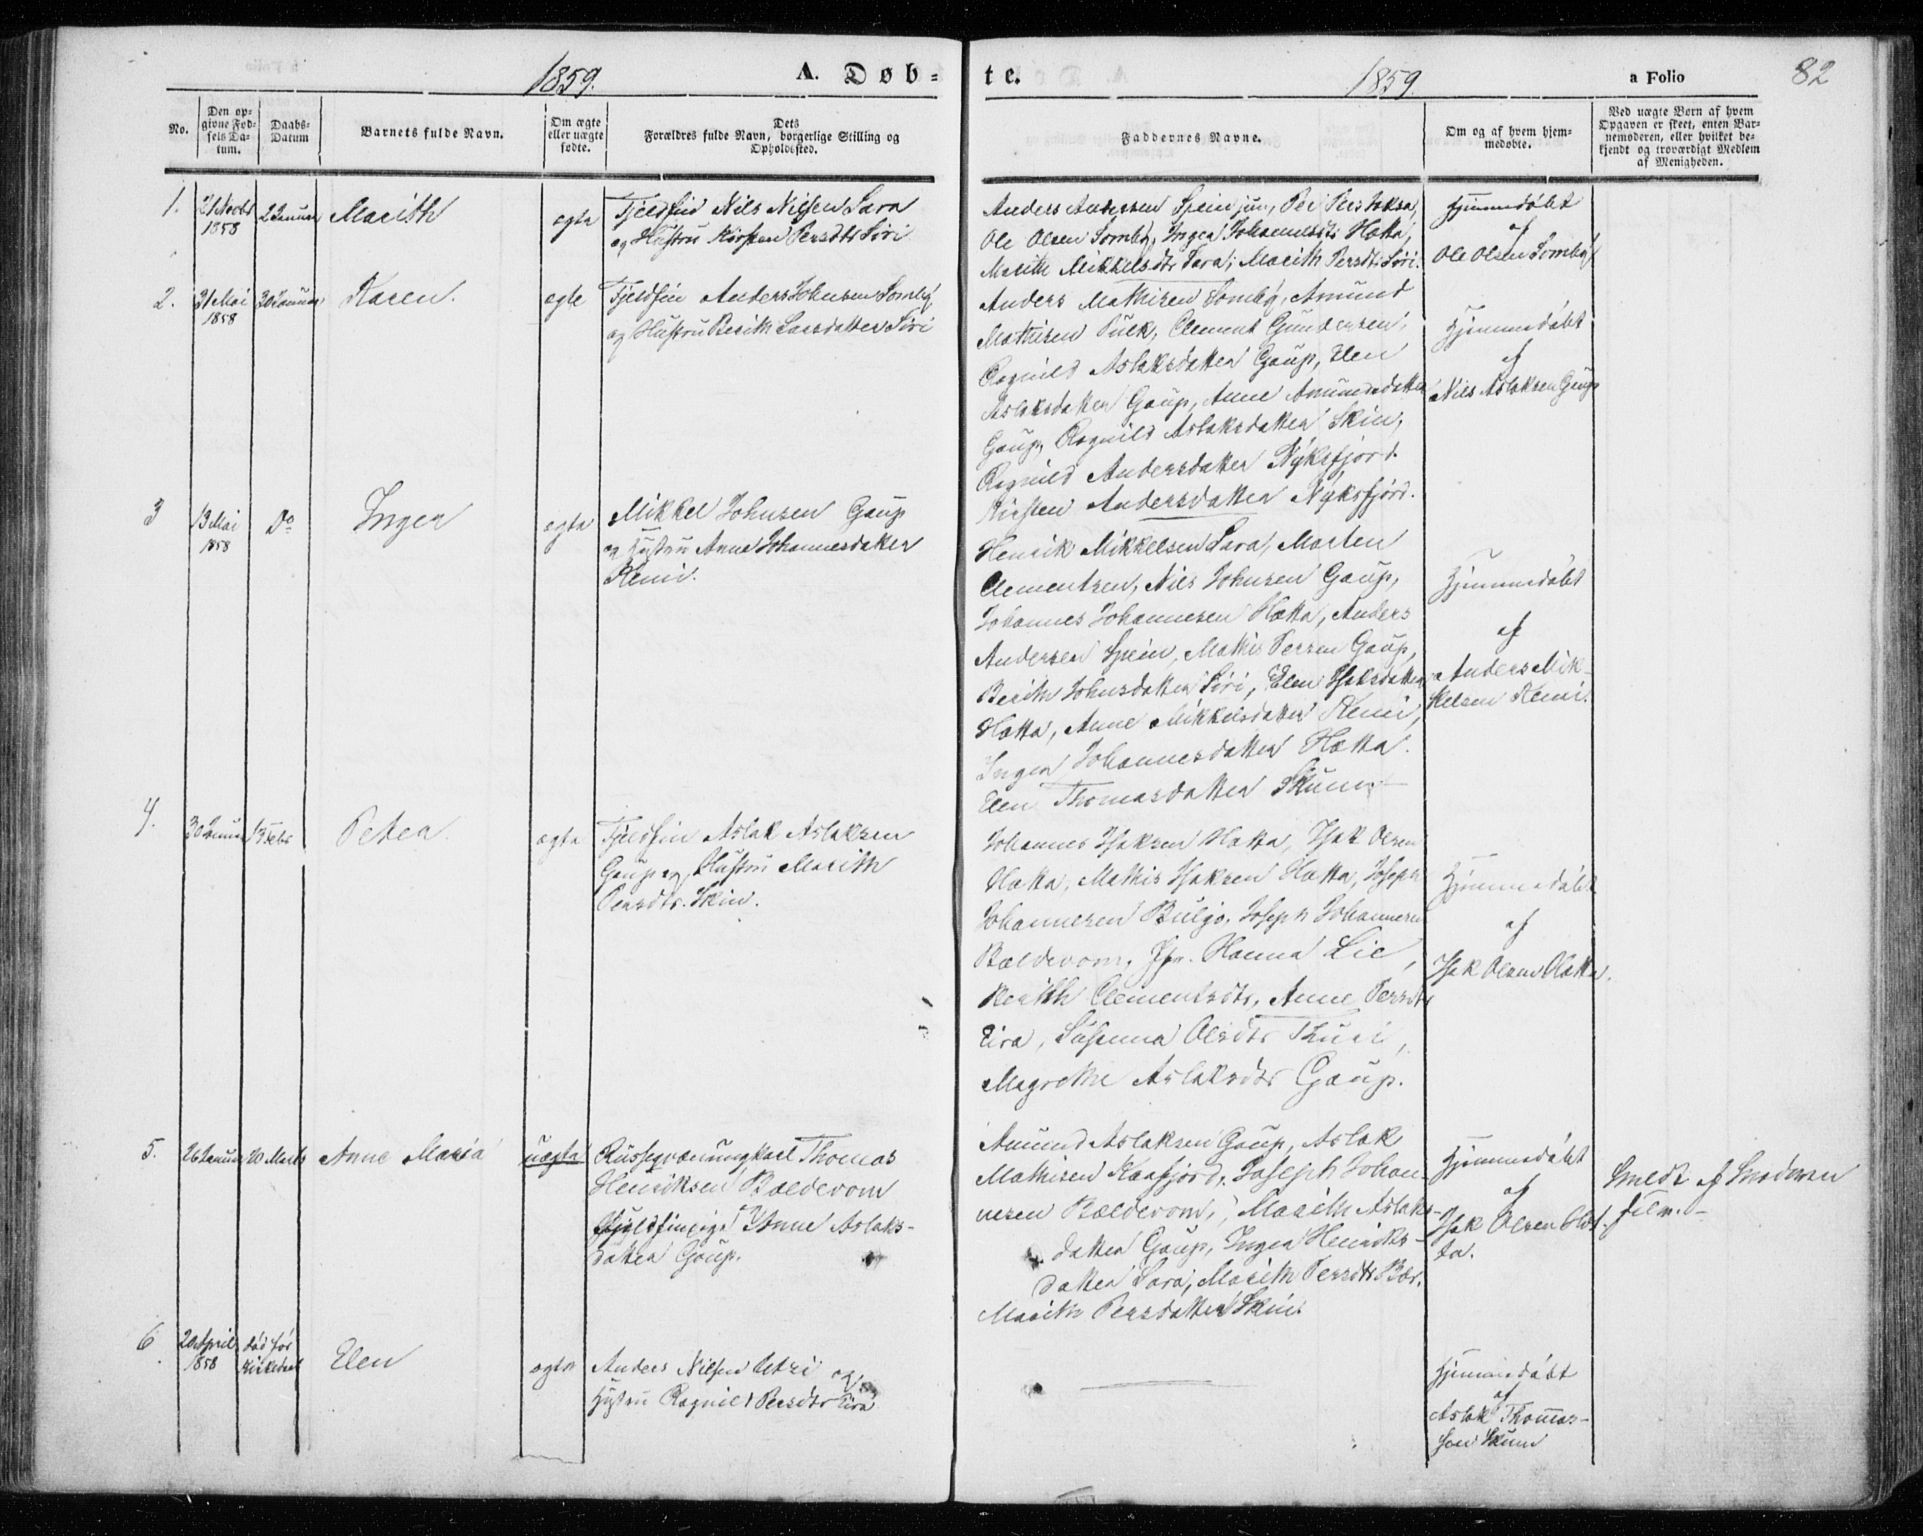 1859. A. Døb-
te. 1859. a Folio 82
No.
Den op-
givne Fød-
sels Da-
tum.
Daabs-
Datum
Barnets fulde Navn.
Om ægte
eller uægte
fødte.
Dets
Forældres fulde Navn, borgerlige Stilling og
Opholdssted.
Faddernes Navne.
Om og af hvem hjem-
medøbte.
Ved uægte Børn af hvem
Opgaven er skeet, enten Bar-
nemoderen, eller hvilket be-
kjendt og troværdigt Medlem
af Menigheden.
1.
21 Novbr
1858
2 Januar
Marith
ægte
Fjeldfin Nils Nilsen Sara
og Hustru Kirsten Persdtr Siri
Anders Andersen Spein jun,
Ole Olsen Somby, Inger Johannesdtr Hætta,
Marith Mikkelsdtr Sara, Marith Persdtr Siri.
Hjemmedøbt
af
Ole Olsen Somby
2.
31 Mai
1858
30 Januar
Karen.
ægte
Fjeldfin Anders Johnsen Somby
og Hustru Berith Larsdatter Siri
Anders Mathisen Somby, Amund
Mathisen Puck, Clement Gundersen,
Ragnild Aslaksdatter Gaup, Elen
Aslaksdatter Gaup, Anne Amundsdatter
Gaup, Ragnild Aslaksdatter Skin,
Ragnild Andersdatter Nyksfjord.
Kirsten Andersdatter Nyksfjord.
Hjemmedøbt
af
Nils Aslaksen Gaup
3
13 Mai
1858
Do
Inger
ægte
Mikkel Johnsen Gaup
og Hustru Anne Johannesdatter
Kemi.
Henrik Mikkelsen Sara, Morten
Clementsen, Nils Johnsen Gaup,
Johannes Johannesen Hætta, Anders
Andersen Spein, Mathis Persen Gaup,
Berith Johnsdatter Siri, Elen Isaksdatter
Hætta, Anne Mikkelsdatter Kemi,
Inger Johannesdatter Hætta.
Elen Thomasdatter Skum
Hjemmedøbt
af
Anders Mik-
kelsen Kemi.
4.
30 Januar
13 Febr
Peter
ægte
Fjeldfin Aslak Aslaksen
Gaup og Hustru Marith
Persdtr. Skin.
Johannes Isaksen Hætta, Isak Olsen
Hætta, Mathis Isaksen Hætta, Joseph
Johannesen Buljo, Joseph Johannesen
Bældevom, Hanna Lie,
Berith Clementsdtr, Anne Persdtr
Eira, Susanna Olsdtr Thuri,
Magrethe Aslaksdtr Gaup.
Hjemmedøbt
af
Isak Olsen Hætta.
5.
26 Januar
20 Marts
Anne Maria
uægte
Thomas
Henriksen Bældevom
Anne Aslaks-
datter Gaup.
Amund Aslaksen Gaup, Aslak
Mathisen Kaafjord, Joseph Johan-
nesen Bældevom, Marith Aslaks-
datter Gaup, Inger Henriks-
datter Sara, Marith Persdtr Bær.
Marith Persdatter Skin.
Hjemmedøbt
af
Isak Olsen Hæt-
ta.
af
6.
20 April
1858
død før
Elen
ægte
Anders Nilsen Utsi og
Hustru Ragnild Persdtr Eira
Hjemmedøbt
af
Aslak Thomas-
sen Skum